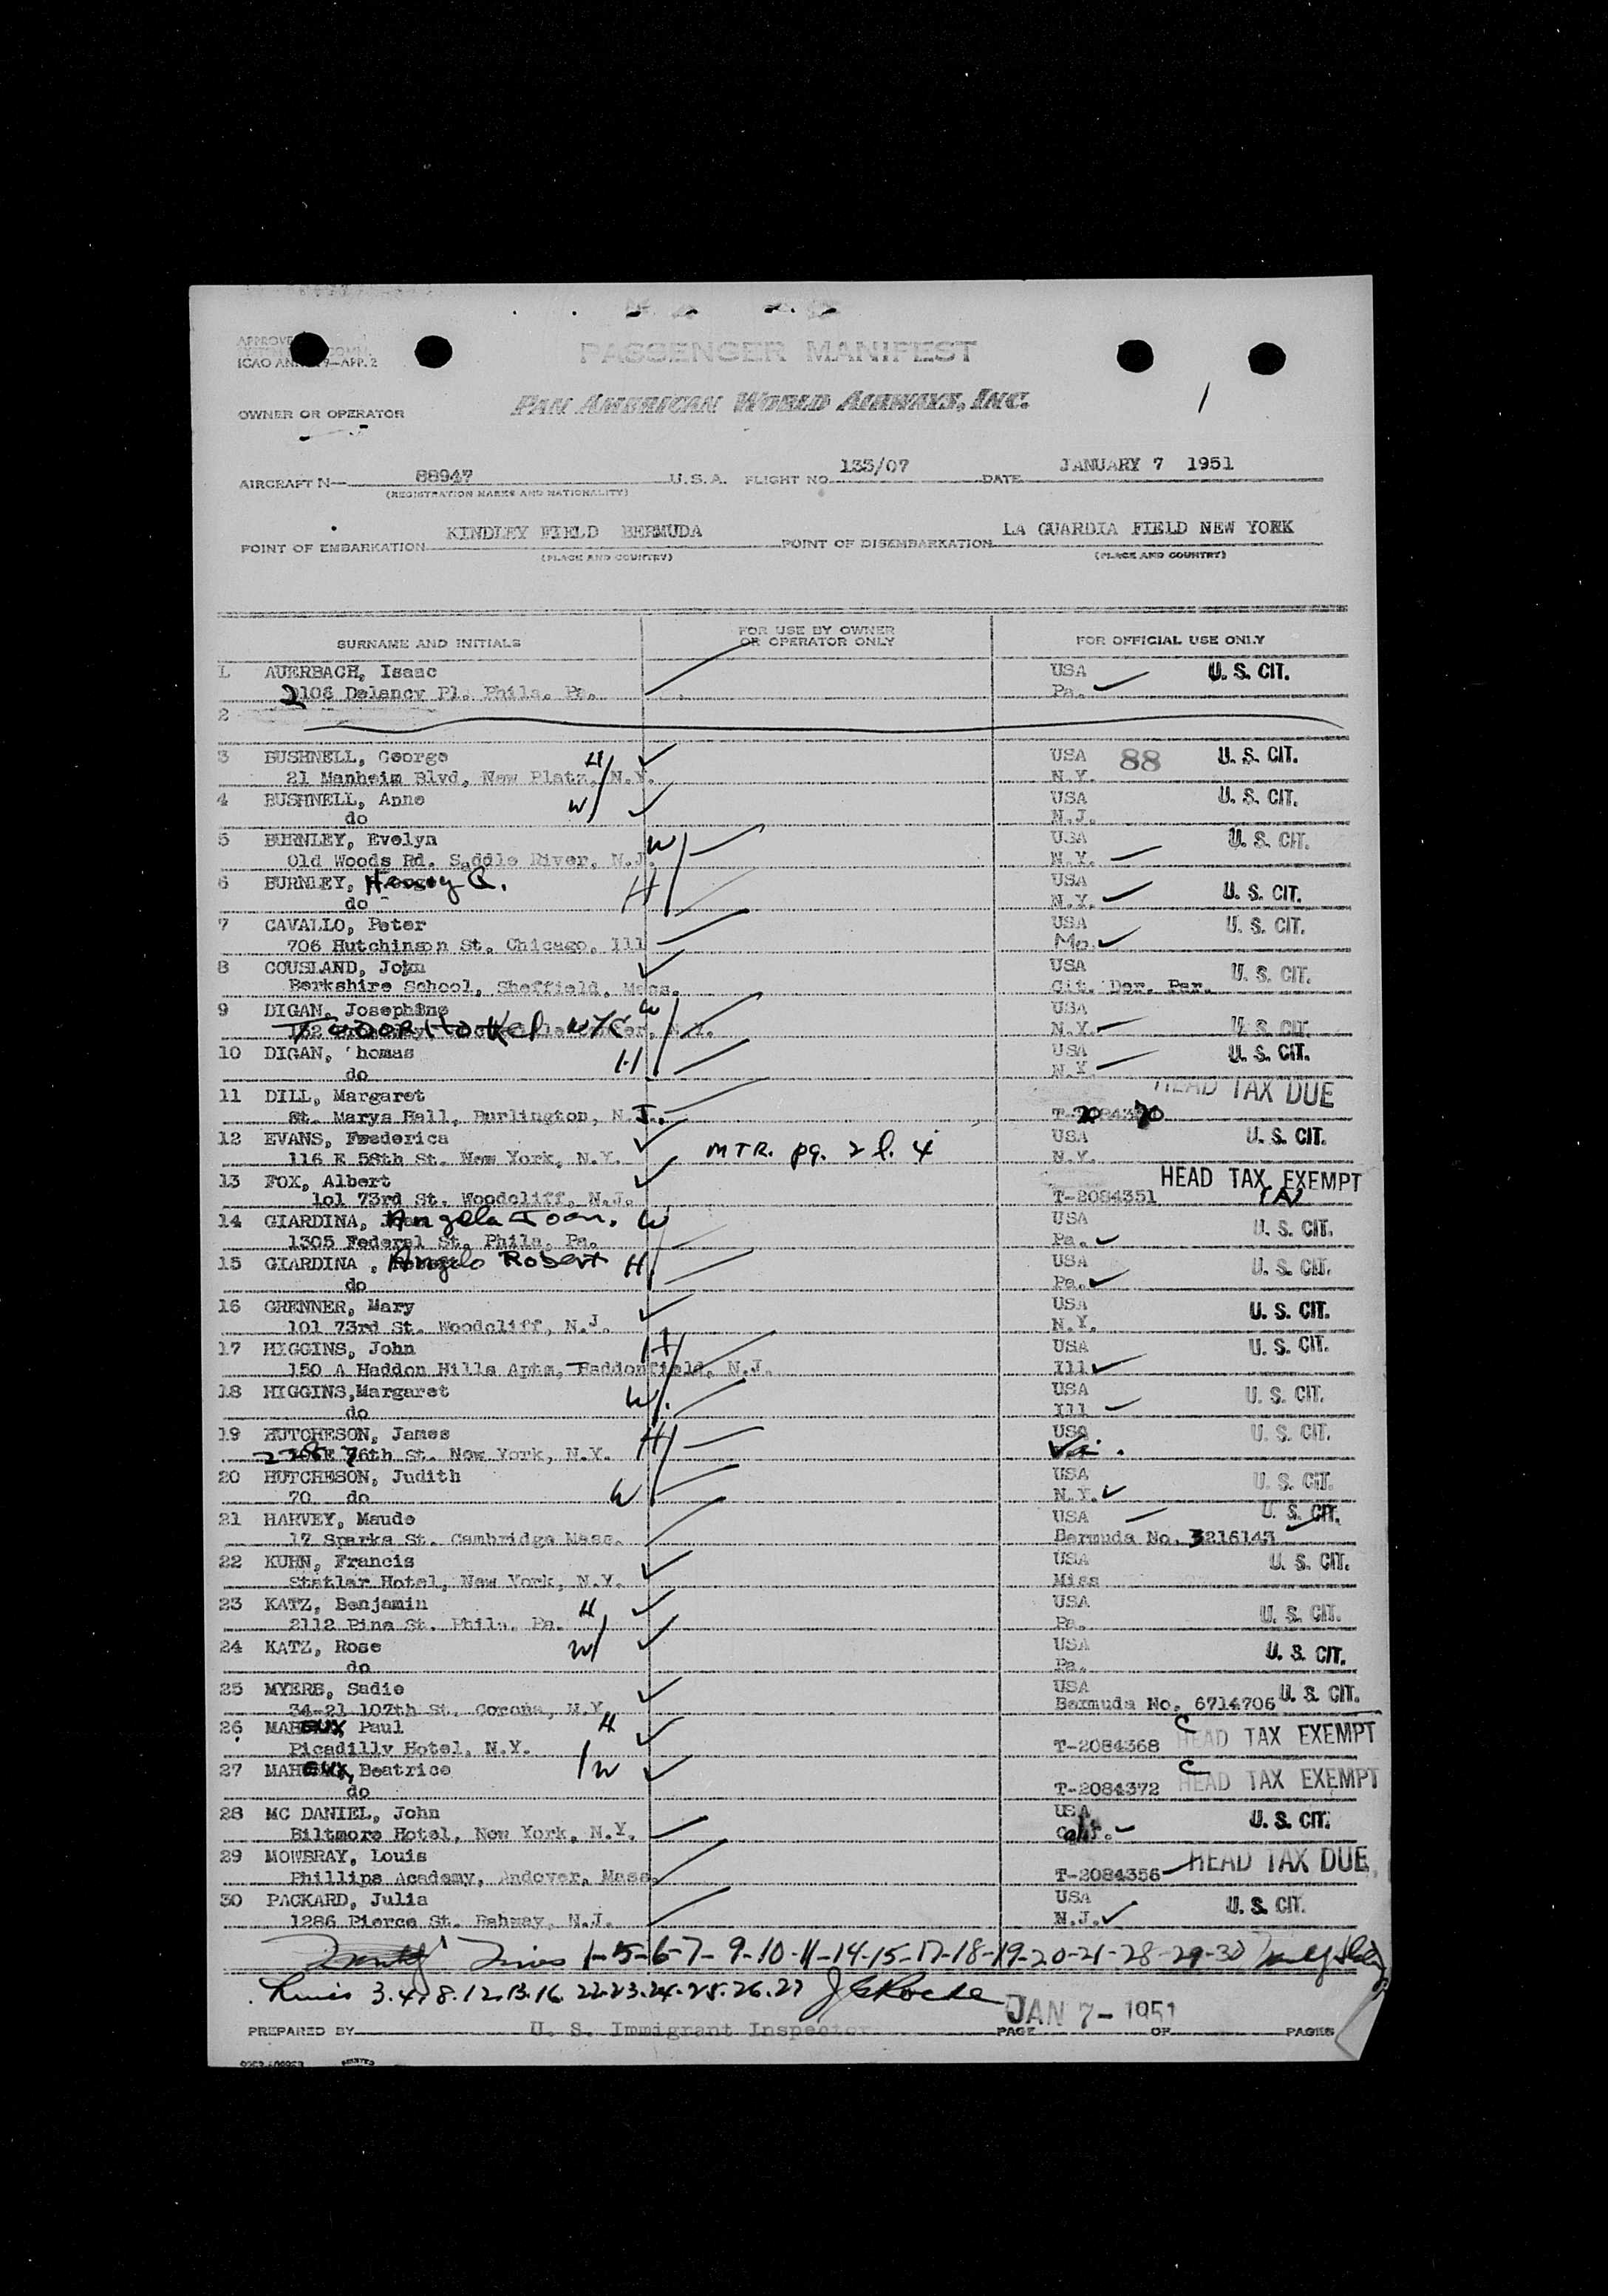 PASSENGER MANIFEST
ICAO ANN 9—APP. 2
OWNER OR OPERATOR
PAN AMERICAN WORLD AIRWAYS, INC.
1
AIRCRAFT N— 88947 U.S.A. FLIGHT NO. 133/07 DATE JANUARY 7 1951
(REGISTRATION MARKS AND NATIONALITY)
POINT OF EMBARKATION KINDLEY FIELD BERMUDA POINT OF DISEMBARKATION LA GUARDIA FIELD NEW YORK
(PLACE AND COUNTRY) (PLACE AND COUNTRY)
SURNAME AND INITIALS FOR USE BY OWNER OR OPERATOR ONLY FOR OFFICIAL USE ONLY
1 AUERBACH, Isaac USA U. S. CIT.
2106 Delancy Pl. Phila. Pa. Pa.
2
3 BUSHNELL, George H USA 88 U. S. CIT.
21 Manheim Blvd, New Platz, N.Y. N.Y.
4 BUSHNELL, Anne W USA U. S. CIT.
do N.J.
5 BURNLEY, Evelyn W USA U. S. CIT.
Old Woods Rd. Saddle River, N.J. N.Y.
6 BURNLEY, H USA U. S. CIT.
do N.Y.
7 CAVALLO, Peter USA U. S. CIT.
706 Hutchinson St. Chicago, Ill Mo.
8 COUSLAND, John USA U. S. CIT.
Berkshire School, Sheffield, Mass. Cit. Der. Par.
9 DIGAN, Josephine W USA
Hotel NYC N.Y. U. S. CIT.
10 DIGAN, Thomas H USA U. S. CIT.
do N.Y.
11 DILL, Margaret HEAD TAX DUE
St. Marys Hall, Burlington, N.J. T-2084370
12 EVANS, Frederica MTR. pg. 2 l. 4 USA U. S. CIT.
116 E 58th St. New York, N.Y. N.Y.
13 FOX, Albert HEAD TAX EXEMPT
101 73rd St. Woodcliff, N.J. T-2084351
14 GIARDINA, Angela Joan. W USA U. S. CIT.
1305 Federal St. Phila, Pa. Pa.
15 GIARDINA, Angelo Robert H USA U. S. CIT.
do Pa.
16 GRENNER, Mary USA U. S. CIT.
101 73rd St. Woodcliff, N.J. N.Y.
17 HIGGINS, John H USA U. S. CIT.
150 A Haddon Hills Apts, Haddonfield, N.J. Ill
18 HIGGINS, Margaret W USA U. S. CIT.
do Ill
19 HUTCHESON, James H USA U. S. CIT.
E 76th St. New York, N.Y. Va.
20 HUTCHESON, Judith W USA U. S. CIT.
70 do N.Y.
21 HARVEY, Maude USA U. S. CIT.
17 Sparks St. Cambridge Mass. Bermuda No. 3216143
22 KUHN, Francis USA U. S. CIT.
Statlar Hotel, New York, N.Y. Miss
23 KATZ, Benjamin H USA U. S. CIT.
2112 Pine St. Phila. Pa. Pa.
24 KATZ, Rose W USA U. S. CIT.
do Pa.
25 MYERS, Sadie USA U. S. CIT.
34-21 107th St. Corona, N.Y. Bermuda No. 6714706
26 MAHEUX, Paul H C HEAD TAX EXEMPT
Picadilly Hotel, N.Y. T-2084368
27 MAHEUX, Beatrice W C HEAD TAX EXEMPT
do T-2084372
28 MC DANIEL, John USA U. S. CIT.
Biltmore Hotel, New York, N.Y. Calif.
29 MOWBRAY, Louis HEAD TAX DUE
Phillips Academy, Andover, Mass. T-2084356
30 PACKARD, Julia USA U. S. CIT.
1286 Pierce St. Rahway, N.J. N.J.
Lines 1-5-6-7-9-10-11-14-15-17-18-19-20-21-28-29-30
Lines 3.4.8.12.13.16. 22.23.24.25.26.27 Roche
JAN 7 - 1951
PREPARED BY U. S. Immigrant Inspector PAGE OF PAGES